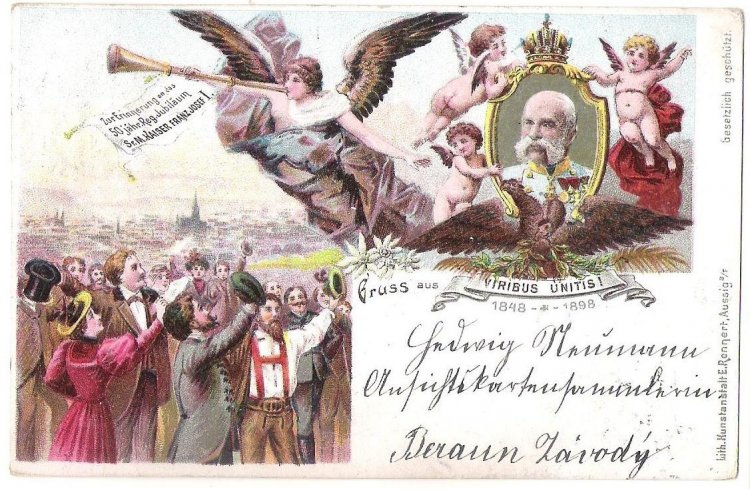 Zur Erinnerung an das
50 jähr. Reg. Jubiläum
Sr. M. KAISER FRANZ JOSEF I.
Gruss aus
VIRIBUS UNITIS!
1848 - 1898
Hedwig Neumann
Ansichtskartensammlerin.
Beraun Závodý
gesetzlich geschützt.
Lith. Kunstanstalt E. Rennert, Aussig a/E